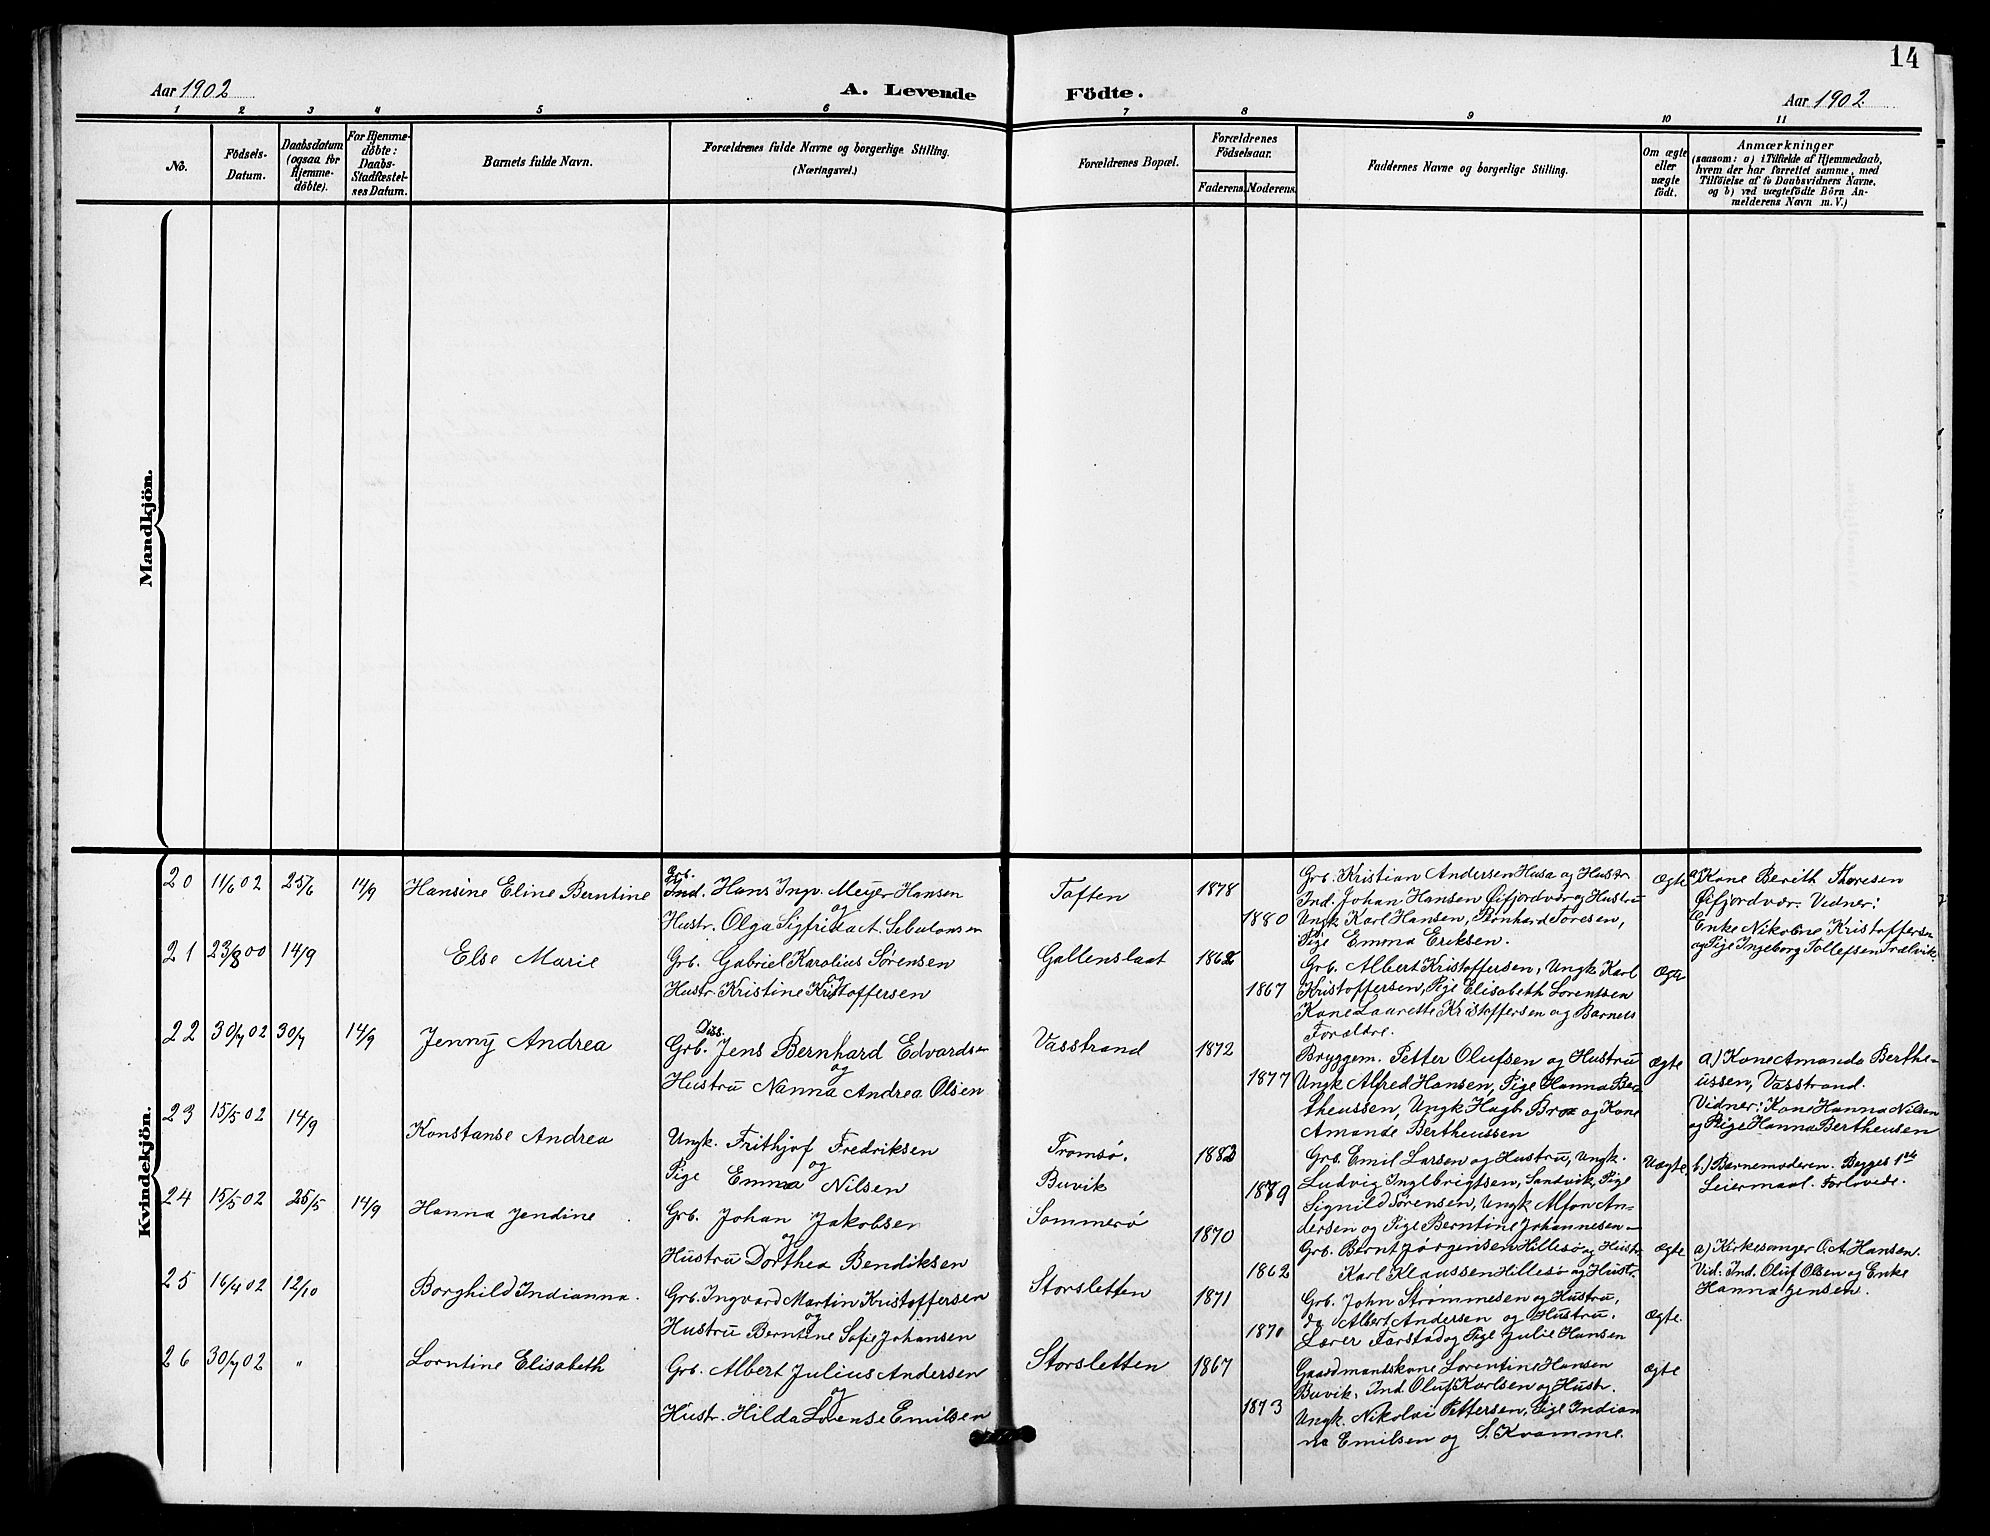 14
Aar 1902
A. Levende Födte.
Aar 1902.
1 2 3 4 5 6 7 8 9 10 11
No.
Födsels-
Datum.
Daabsdatum
(ogsaa for
Hjemme-
döbte).
For Hjemme-
döbte:
Daabs-
Stadfæstel-
ses Datum.
Barnets fulde Navn.
Forældrenes fulde Navne og borgerlige Stilling.
(Næringsvei.)
Forældrenes Bopæl.
Forældrenes
Födselsaar.
Faderens. Moderens.
Faddernes Navne og borgerlige Stilling.
Om ægte
eller
uægte
födt.
Anmærkninger
(saasom: a) i Tilfælde af Hjemmedaab,
hvem der har forrettet samme, med
Tilföielse af to Daabsvidners Navne,
og b) ved uægtefödte Börn An-
melderens Navn m. V.)
Mandkjön.
Kvindekjön.
20 11/6 02 25/6 14/9 Hansine Eline Berntine
Grb.
Ind. Hans Ingv. Meyer Hansen
og
Hustr. Olga Sigfrida A. Sebulonsen
Toften 1878
1880
Grb. Kristian Andersen Husa og Hustr.
Ind. Johan Hansen Øifjordvær og Hustru
Ungk. Karl Hansen, Bernhard Toresen,
Pige Emma Eriksen.
Ægte
a) Kone Berith Thoresen
Øifjordvær. Vidner:
Enke Nikoline Kristoffersen
og Pige Ingeborg Tollefsen Trælvik.
21 23/8 00 14/9 Else Marie
Grb. Gabriel Karolius Sørensen
og
Hustr. Kristine Kristoffersen
Gallenslaat 1862
1867
Grb. Albert Kristoffersen, Ungk Karl
Kristoffersen, Pige Elisabeth Lorentsen
Kone Laurette Kristoffersen og Barnets
Forældre.
Ægte
22 30/7 02 30/7 14/9 Jenny Andrea
Diss.
Grb. Jens Bernhard Edvardsen
og
Hustru Nanna Andrea Olsen
Vasstrand 1872
1877
Bryggem. Petter Olufsen og Hustru
Ungk Alfred Hansen, Pige Hanna Ber-
theussen, Ungk Hagb. Brox og Kone
Amande Bertheussen
Ægte
a) Kone Amanda Berthe-
ussen, Vasstrand.
Vidner: Kone Hanna Nilsen
og Pige Hanna Bertheusen
23 15/5 02 14/9 Konstanse Andrea
Ungk. Frithjof Fredriksen
og
Pige Emma Nilsen
Tromsø.
Buvik
1883
1879
Grb. Emil Larsen og Hustru, Ungk.
Ludvig Ingebrigtsen, Sandvik, Pige
Signild Sørensen, Ungk Alfon An-
dersen og Pige Berntine Johannesen
Uægte
b.) Barnemoderen. Begges 1ste
Leiermaal. Forlovede.
24 15/5 02 25/5 14/9 Hanna Jendine
Grb. Johan Jakobsen
og
Hustru Dorthea Bendiksen
Sommerø 1870
1862
Grb. Bernt Jørgensen Hillesø og Hustr.
Karl Klaussen Hillesø og Hustr.
Ægte
a) Kirkesanger O. A. Hansen.
Vid: Ind. Oluf Olsen og Enke
Hanna Jensen.
25 16/4 02 12/10 Borghild Indianna.
Grb. Ingvard Martin Kristoffersen
og
Hustru Berntine Sofie Johansen
Storsletten 1871
1870
Grb. John Strømmesen og Hustru,
do Albert Andersen og Hustru.
Lærer Farstad og Pige Julie Hansen
Ægte.
26 30/7 02 " Lorntine Elisabeth
Grb. Albert Julius Andersen
og
Hustr. Hilda Lorense Emilsen
Storsletten 1867
1873
Gaardmandskone Lorentine Hansen
Buvik, Ind. Oluf Karlsen og Hustr.
Ungk. Nikolai Pettersen, Pige Indian
na Emilsen og S. Kvamme.
Ægte